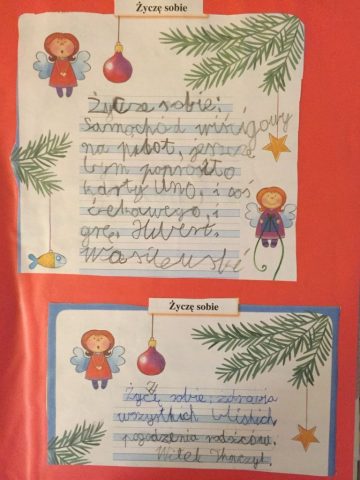 Życzę sobie
Życze sobie:
Samochód wiścigowy
na pilot, jeszcze
bym poprosito
karty Uno, i coś
ciekawego, i
grę. Hubert.
Wasilewski
Życzę sobie
Życzę sobie, zdrowia
wszystkich bliskich
pogodzenia rodziców.
Witek